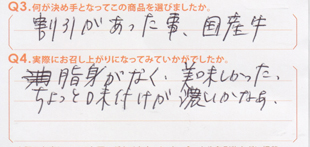 Q3.何が決め手となってこの商品を選びましたか。
割引があった事、国産牛
Q4.実際にお召し上がりになってみていかがでしたか。
脂身がなく、美味しかった、
ちょっと味付けが濃いかなあ、